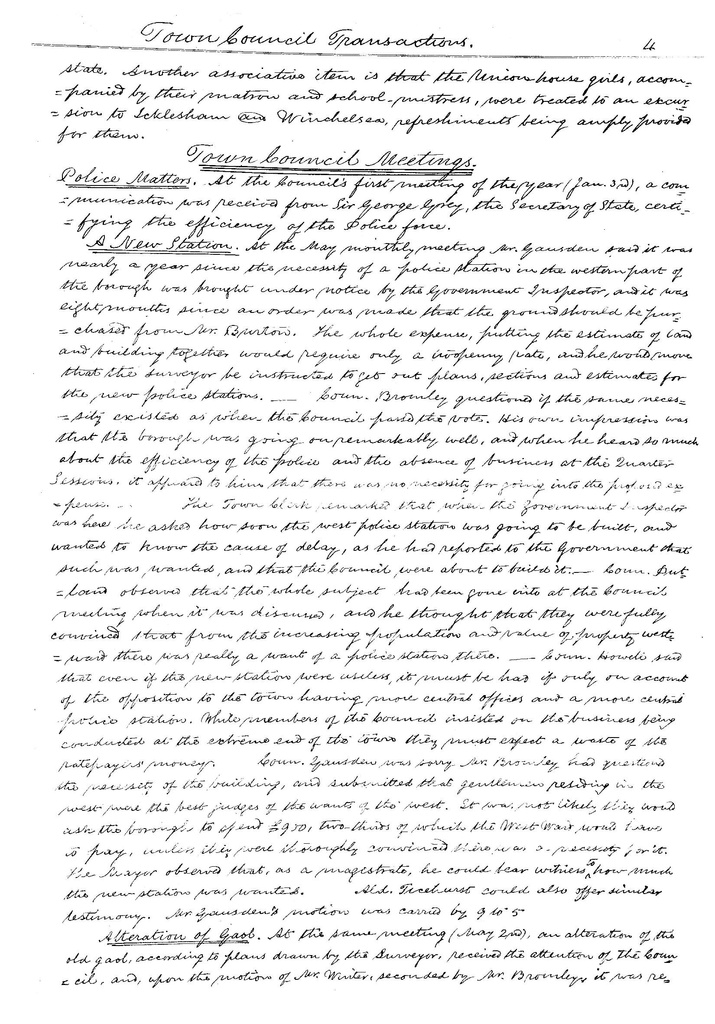 Town Council Transactions. 4
state. Another associative item is that the Union-house girls, accom-
=panied by their matron and school-mistress, were treated to an excur
=sion to Icklesham and Winchelsea, refreshments being amply provided
for them.
Town Council Meetings.
Police Matters. At the Council's first meeting of the year (Jan. 3rd), a com-
=munication was received from Sir George Grey, the Secretary of State, certi-
=fying the efficiency of the Police force.
A New Station. At the May monthly meeting Mr. Gausden said it was
nearly a year since the necessity of a police station in the western part of
the borough was brought under notice by the Government Inspector, and it was
eight months since an order was made that the ground should be pur-
=chased from Mr. Burton. The whole expense, putting the estimate of land
and building together would require only a twopenny rate, and he would move
that the surveyor be instructed to get out plans, sections and estimates for
the new police stations. — Coun. Bromley questioned if the same neces=
=sity existed as when the Council passed the vote. His own impression was
that the borough was going on remarkably well, and when he heard so much
about the efficiency of the police and the absence of business at the Quarter
Sessions, it appeared to him that there was no necessity for going into the proposed ex
=pense. — The Town Clerk remarked that when the Government Inspector
was here he asked how soon the west police station was going to be built, and
wanted to know the cause of delay, as he had reported to the Government that
such was wanted, and that the Council were about to build it. — Coun. But-
=land observed that the whole subject had been gone into at the Council
meeting when it was discussed, and he thought that they were fully
convinced that from the increasing population and value of property west=
=ward there was really a want of a police station there. — Coun. Howell said
that even if the new station were useless, it must be had if only on account
of the opposition to the town having more central offices and a more central
police station. While members of the Council insisted on the business being
conducted at the extreme end of the town they must expect a waste of the
ratepayers' money. Coun. Gausden was sorry Mr. Bromley had questioned
the necessity of the building, and submitted that gentlemen residing in the
west were the best judges of the wants of the west. It was not likely they would
ask the borough to spend £900, two-thirds of which the West Ward would have
to pay, unless they were thoroughly convinced there was a necessity for it.
The Mayor observed that, as a magistrate, he could bear witness to how much
the new station was wanted. Ald. Ticehurst could also offer similar
testimony. Mr Gausden's motion was carried by 9 to 5
Alteration of Gaol. At the same meeting (May 2nd), an alteration of the
old gaol, according to plans drawn by the Surveyor, received the attention of the Coun
=cil, and, upon the motion of Mr. Winter, seconded by Mr. Bromley, it was re=